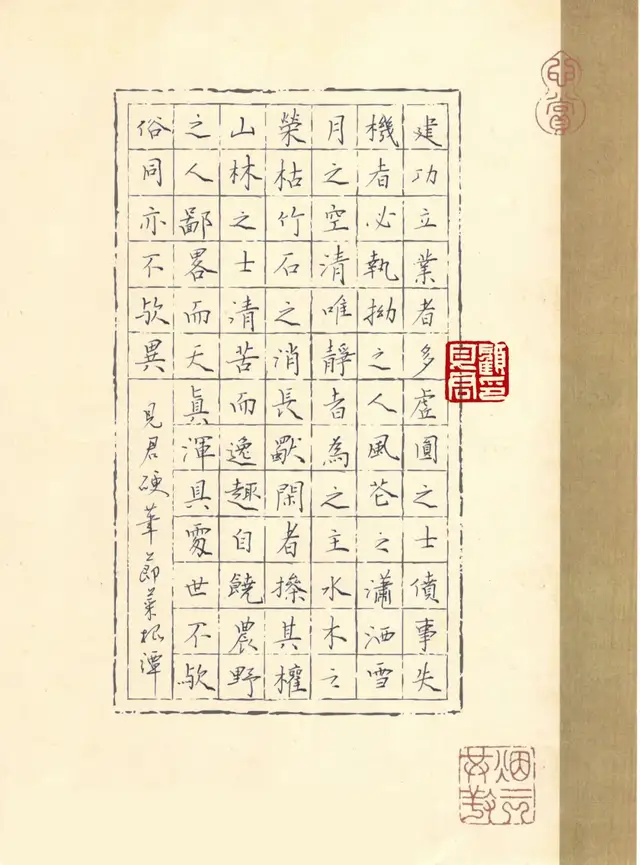 建功立業者多虛圓之士僨事失
機者必執拗之人風花之瀟洒雪
月之空清唯靜者為之主水木之
榮枯竹石之消長獨閑者操其權
山林之士清苦而逸趣自饒農野
之人鄙畧而天眞渾具處世不欤
俗同亦不欤異
見君硬筆節菜根潭
顧印見君